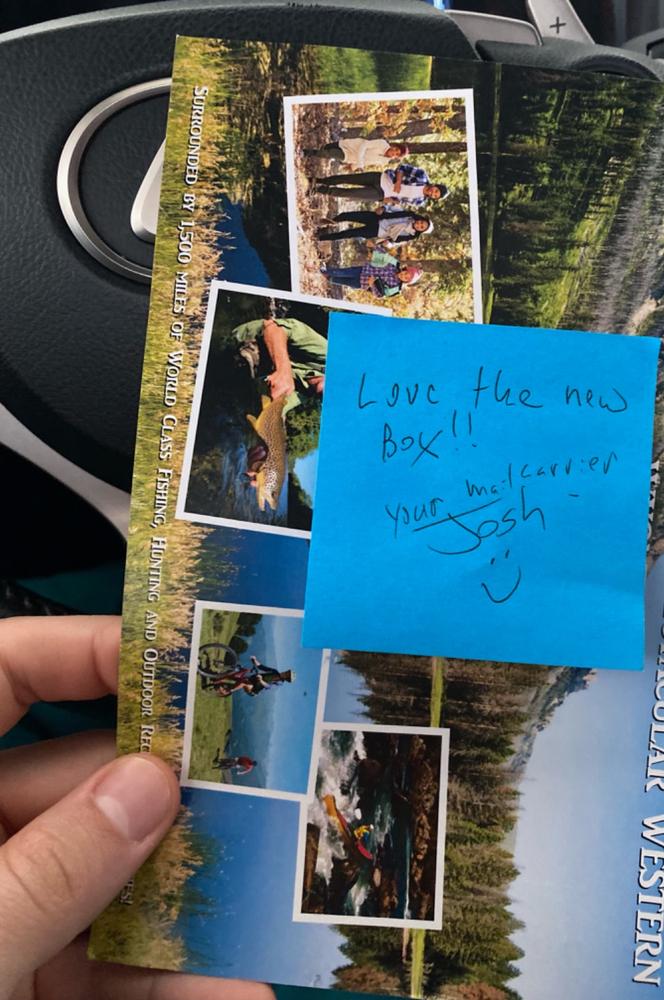 Love the new
Box!!
your mailcarrier
Josh
SURROUNDED BY 1,500 MILES OF WORLD CLASS FISHING, HUNTING AND OUTDOOR
WESTERN
+